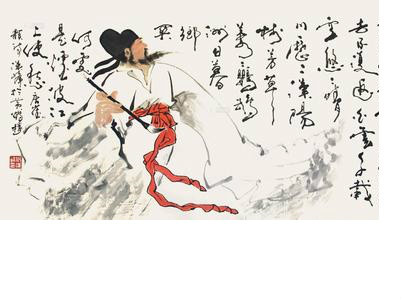 去不復返白雲千載
空悠々晴
川歷々漢陽
樹芳草
萋々鸚鵡
洲日暮
鄉
關
何處
是煙波江
上使愁唐崔
顥詩